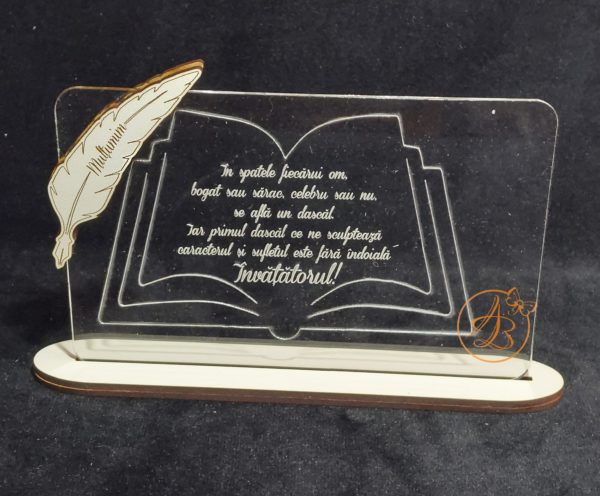 Mulțumim
În spatele fiecărui om,
bogat sau sărac, celebru sau nu,
se află un dascăl.
Iar primul dascăl ce ne sculptează
caracterul și sufletul este fără îndoială
Învățătorul!
AB